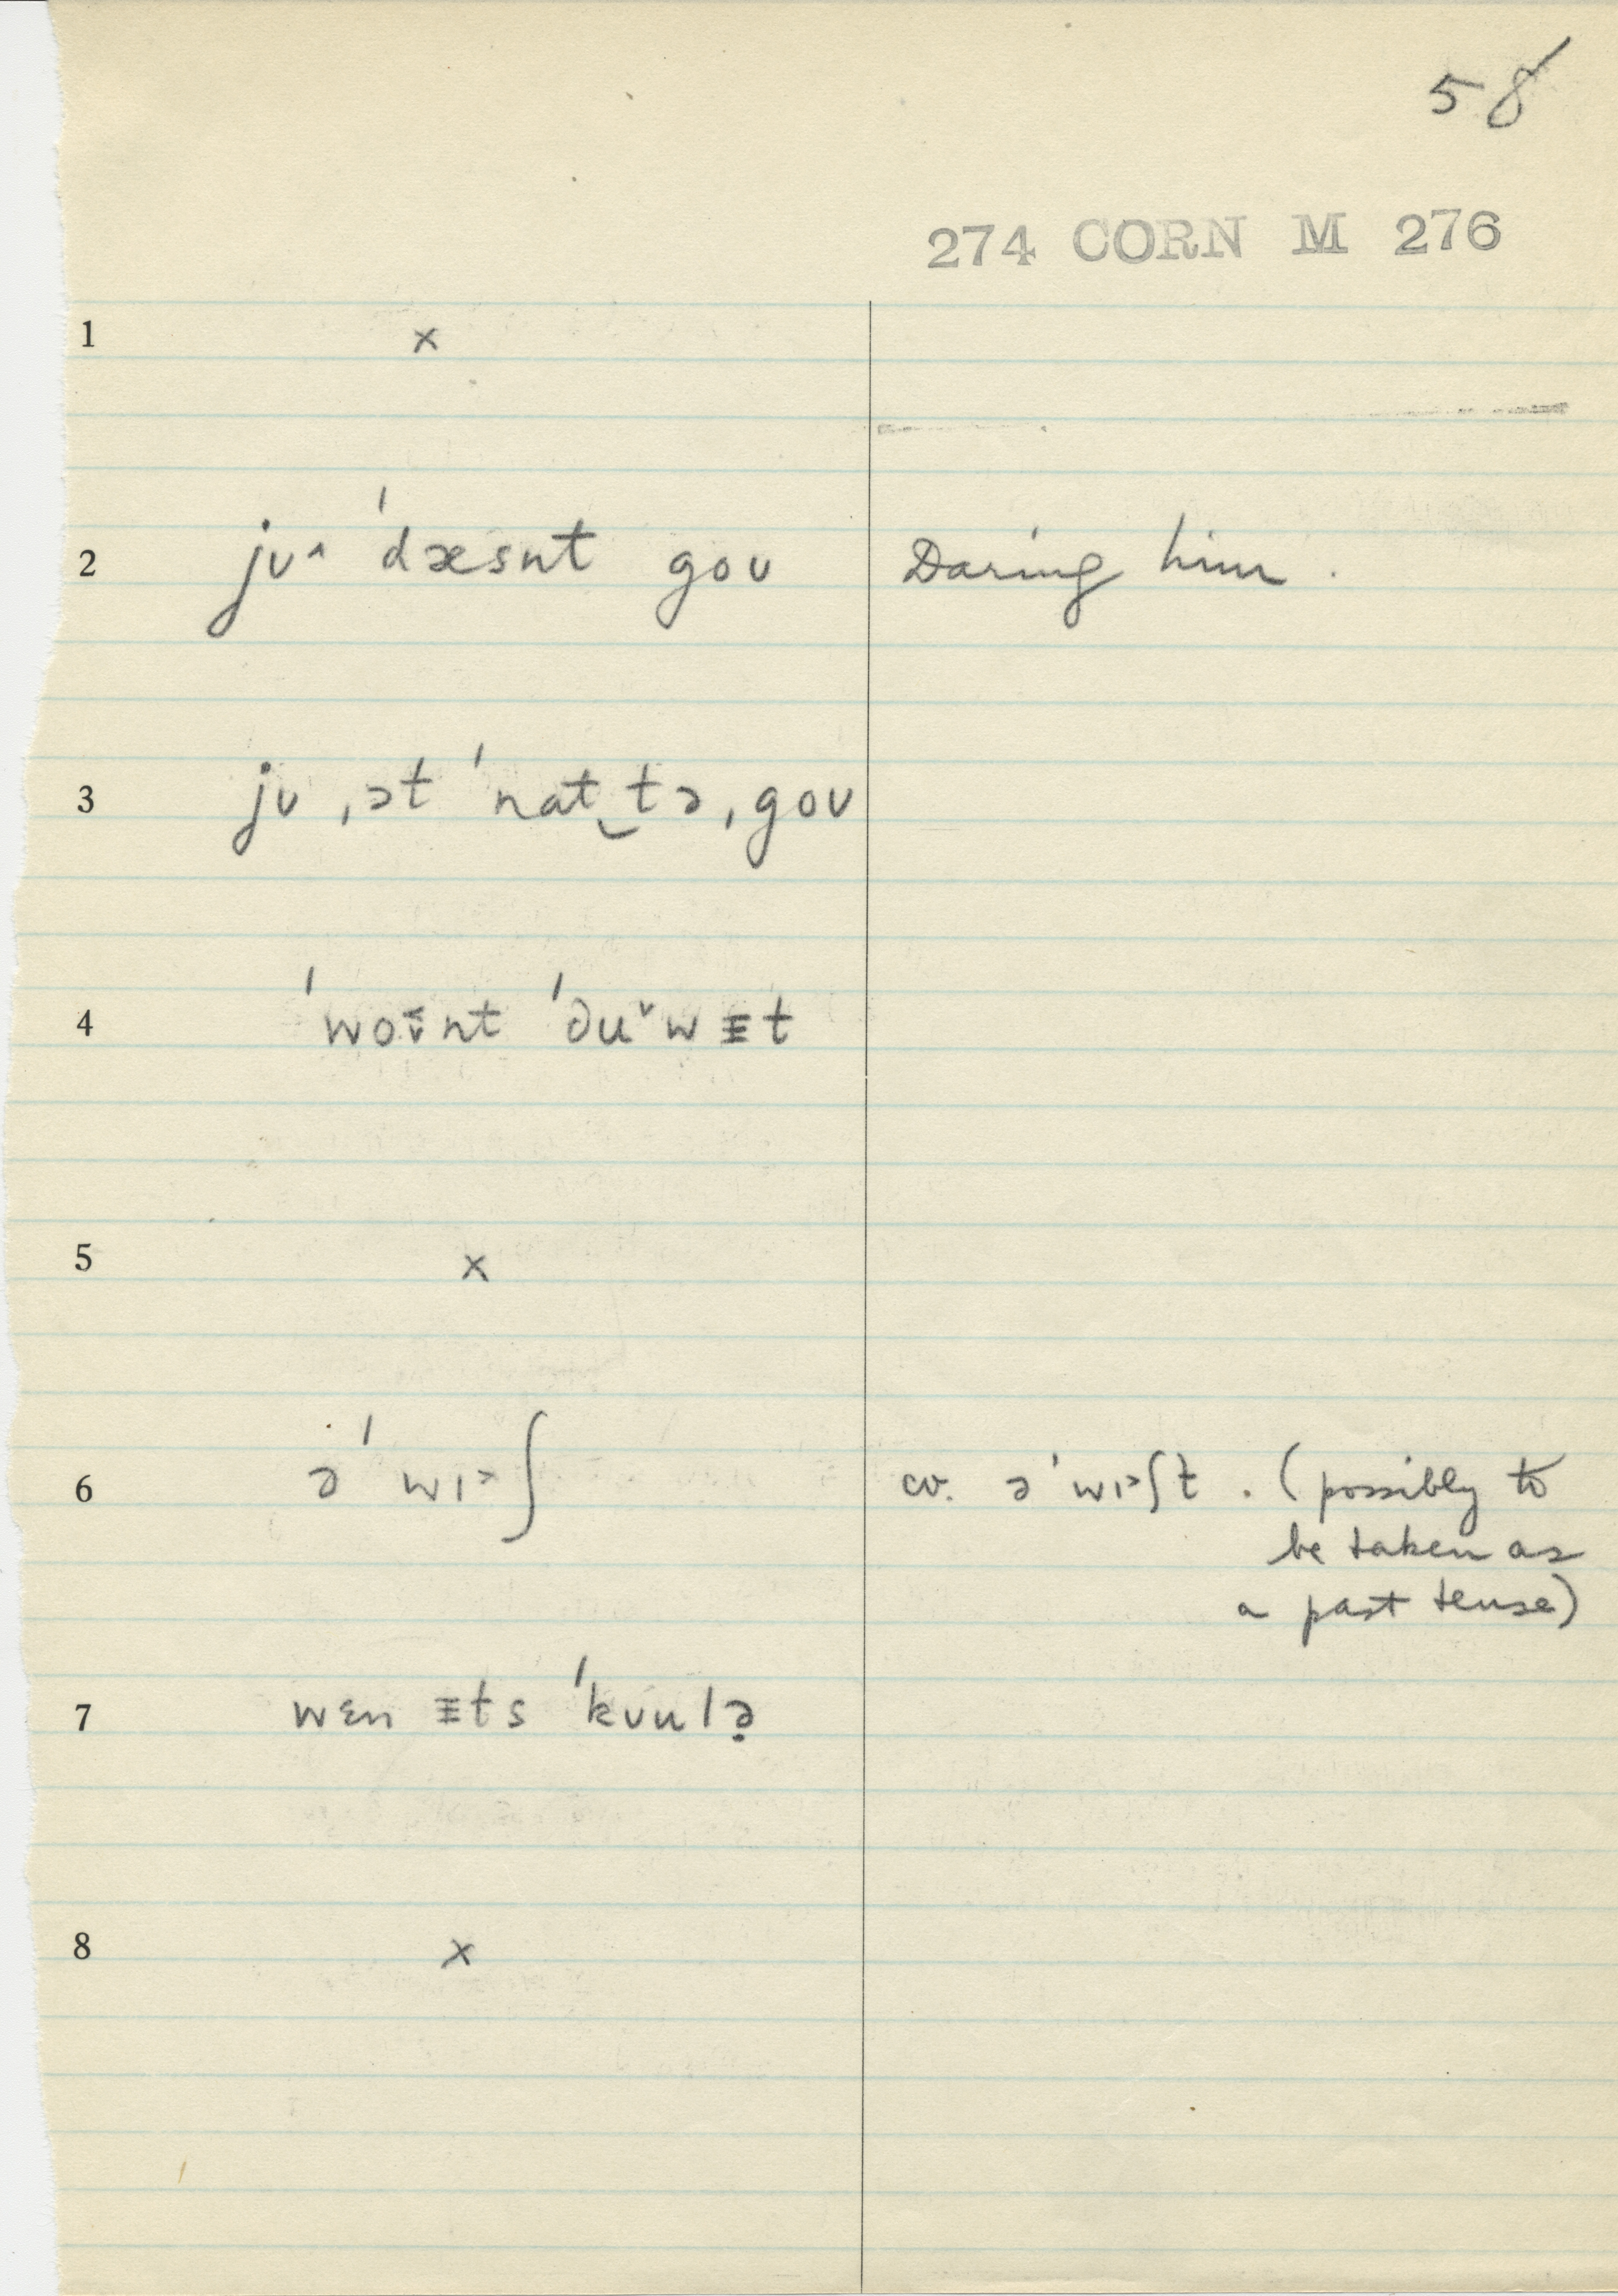 58
274 CORN M 276
1 x
2 jʊ˄ ˈdæsnt goʊ Daring him.
3 jʊ ˌət ˈnat‿tə ˌgoʊ
4 ˈwoʊ̌nt ˈduˇwᵻt
5 x
6 əˈwɪ˃ʃ cv. əˈwɪ˃ʃt. (possibly to
be taken as
a past tense)
7 wɛn ᵻts ˈkʊulə̣
8 x